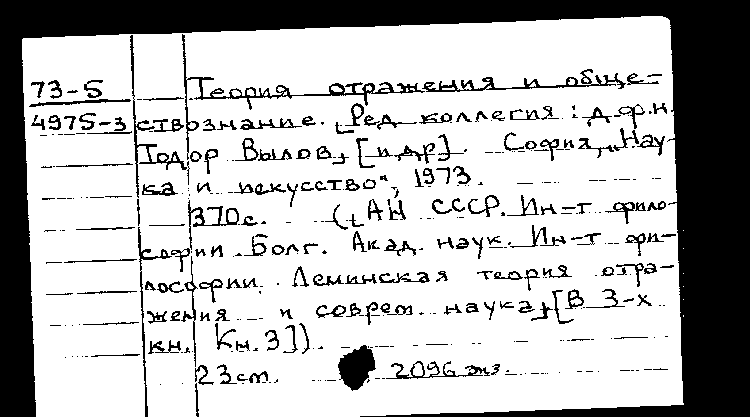 73-5 Теория отражения и обще-
4975-3 ствознание. [Ред. коллегия: д.ф.н.
Тодор Вылов, [и др]. София, „Нау-
ка и искусство", 1973.
370с. ([АН СССР. Ин-т фило-
софии. Болг. Акад. наук. Ин-т фи-
лософии. Ленинская теория отра-
жения и соврем. наука, [В 3-х
кн. Кн.3]).
23см. 2096 экз.